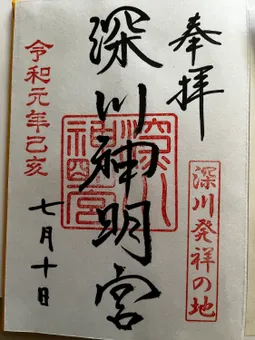 奉拝
深川発祥の地
深川神明宮
深川神明宮
令和元年己亥
七月十日